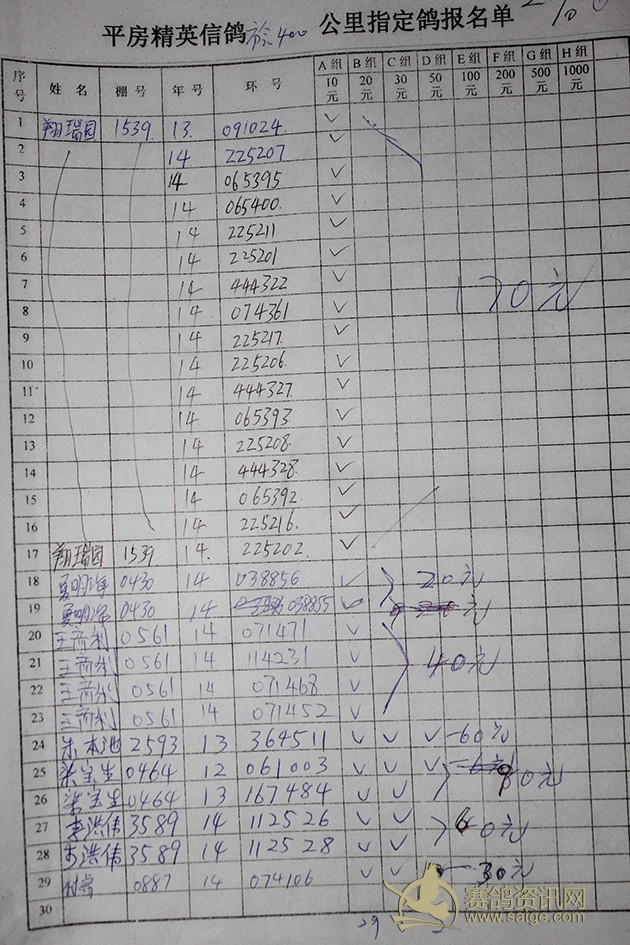 平房精英信鸽 400 公里指定鸽报名单
序号 姓名 棚号 年号 环号 A组10元 B组20元 C组30元 D组50元 E组100元 F组200元 G组500元 H组1000元
1 翔瑞园 1539. 13. 091024. ✓
2 14 225207 ✓
3 14 065395 ✓
4 14 065400. ✓
5 14 225211 ✓
6 14 225201 ✓
7 14 444322 ✓ 170元
8 14 074361 ✓
9 14 225217. ✓
10 14 225206 ✓
11 14 444327. ✓
12 14 065393 ✓
13 14 225208. ✓
14 14 444328. ✓
15 14 065392 ✓
16 14 225216. ✓
17 翔瑞园 1539 14. 225202. ✓
18 0430 14 038856 ✓ 20元
19 0430 14 038855 ✓ 元
20 0561 14 071471 ✓
21 0561 14 114231 ✓ 40元
22 0561 14 071468 ✓
23 0561 14 071452 ✓
24 朱本池 2593 13 364511 ✓ ✓ ✓ -60元
25 梁宝生 0464 12 061003 ✓ ✓ ✓ 90元
26 梁宝生 0464 13 167484 ✓ ✓
27 李洪伟 3589 14 112526 ✓ ✓ 60元
28 李洪伟 3589 14 112528 ✓ ✓
29 0887 14 074106 ✓ ✓ 30元
30
29
赛鸽资讯网
www.saige.com